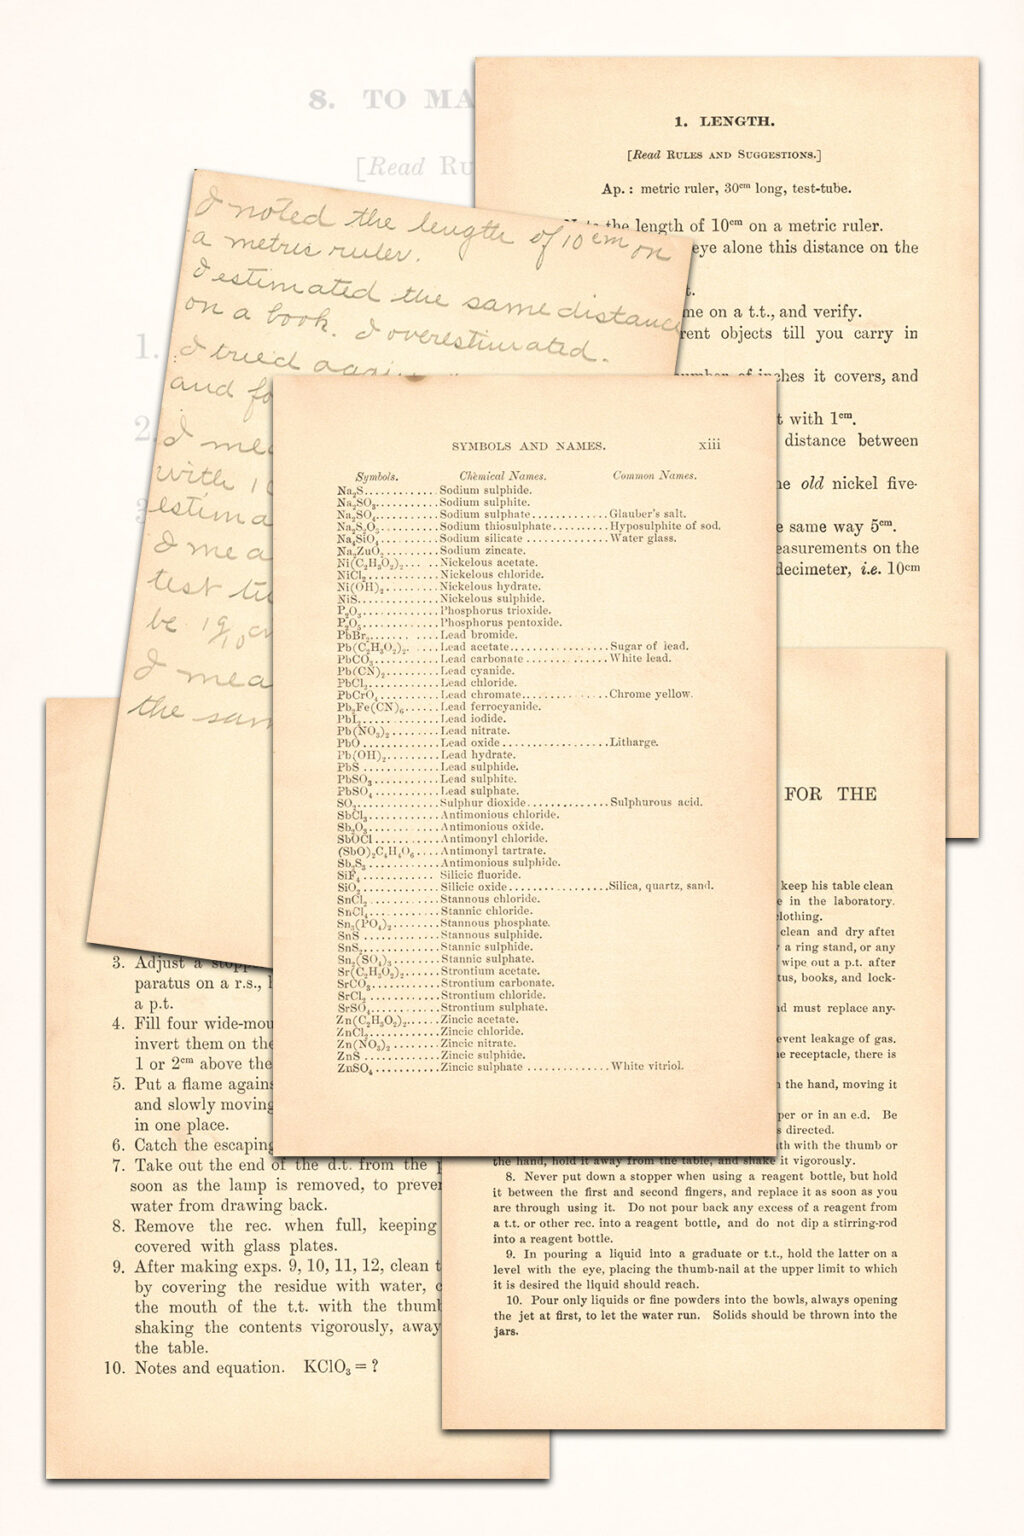 8. TO MA
[Read RU
1.
2.
1. LENGTH.
[Read RULES AND SUGGESTIONS.]
Ap.: metric ruler, 30cm long, test-tube.
the length of 10cm on a metric ruler.
eye alone this distance on the
t.
me on a t.t., and verify.
rent objects till you carry in
number of inches it covers, and
t with 1cm.
distance between
ne old nickel five-
e same way 5cm.
easurements on the
decimeter, i.e. 10cm
I noted the length of 10cm on
a metric ruler.
I estimated the same distance
on a book. I overestimated.
I tried again
and fo
I mea
with 10
estima
I mea
test tu
be 1 9/10 cm
I mea
the sam
SYMBOLS AND NAMES. xiii
Symbols. Chemical Names. Common Names.
Na₂S............Sodium sulphide.
Na₂SO₃..........Sodium sulphite.
Na₂SO₄..........Sodium sulphate.............Glauber's salt.
Na₂S₂O₃.........Sodium thiosulphate.........Hyposulphite of sod.
Na₄SiO₄.........Sodium silicate .............Water glass.
Na₂ZuO₂.........Sodium zincate.
Ni(C₂H₃O₂)₂... ..Nickelous acetate.
NiCl₂...........Nickelous chloride.
Ni(OH)₂.........Nickelous hydrate.
NiS.............Nickelous sulphide.
P₂O₃............Phosphorus trioxide.
P₂O₅............Phosphorus pentoxide.
PbBr₂...... ....Lead bromide.
Pb(C₂H₃O₂)₂. ....Lead acetate................Sugar of lead.
PbCO₃...........Lead carbonate .............White lead.
Pb(CN)₂.........Lead cyanide.
PbCl₂...........Lead chloride.
PbCrO₄..........Lead chromate..............Chrome yellow.
Pb₂Fe(CN)₆......Lead ferrocyanide.
PbI₂............Lead iodide.
Pb(NO₃)₂........Lead nitrate.
PbO.............Lead oxide .................Litharge.
Pb(OH)₂.........Lead hydrate.
PbS.............Lead sulphide.
PbSO₃...........Lead sulphite.
PbSO₄...........Lead sulphate.
SO₂.............Sulphur dioxide.............Sulphurous acid.
SbCl₃...........Antimonious chloride.
Sb₂O₃...........Antimonious oxide.
SbOCl...........Antimonyl chloride.
(SbO)₂C₄H₄O₆....Antimonyl tartrate.
Sb₂S₃...........Antimonious sulphide.
SiF₄............Silicic fluoride.
SiO₂............Silicic oxide.................Silica, quartz, sand.
SnCl₂...........Stannous chloride.
SnCl₄...........Stannic chloride.
Sn₃(PO₄)₂.......Stannous phosphate.
SnS.............Stannous sulphide.
SnS₂............Stannic sulphide.
Sn₂(SO₄)₃.......Stannic sulphate.
Sr(C₂H₃O₂)₂.....Strontium acetate.
SrCO₃...........Strontium carbonate.
SrCl₂...........Strontium chloride.
SrSO₄...........Strontium sulphate.
Zn(C₂H₃O₂)₂.....Zincic acetate.
ZnCl₂...........Zincic chloride.
Zn(NO₃)₂........Zincic nitrate.
ZnS.............Zincic sulphide.
ZnSO₄...........Zincic sulphate .............White vitriol.
3. Adjust a stopp
paratus on a r.s., 
a p.t.
4. Fill four wide-mou
invert them on the
1 or 2cm above the
5. Put a flame again
and slowly moving
in one place.
6. Catch the escaping
7. Take out the end of the d.t. from the
soon as the lamp is removed, to preve
water from drawing back.
8. Remove the rec. when full, keeping
covered with glass plates.
9. After making exps. 9, 10, 11, 12, clean t
by covering the residue with water,
the mouth of the t.t. with the thumb
shaking the contents vigorously, away
the table.
10. Notes and equation. KClO₃ = ?
FOR THE
keep his table clean
e in the laboratory.
clothing.
clean and dry after
a ring stand, or any
wipe out a p.t. after
tus, books, and lock-
nd must replace any-
event leakage of gas.
ne receptacle, there is
n the hand, moving it
per or in an e.d. Be
s directed.
th with the thumb or
the hand, hold it away from the table, and shake it vigorously.
8. Never put down a stopper when using a reagent bottle, but hold
it between the first and second fingers, and replace it as soon as you
are through using it. Do not pour back any excess of a reagent from
a t.t. or other rec. into a reagent bottle, and do not dip a stirring-rod
into a reagent bottle.
9. In pouring a liquid into a graduate or t.t., hold the latter on a
level with the eye, placing the thumb-nail at the upper limit to which
it is desired the liquid should reach.
10. Pour only liquids or fine powders into the bowls, always opening
the jet at first, to let the water run. Solids should be thrown into the
jars.